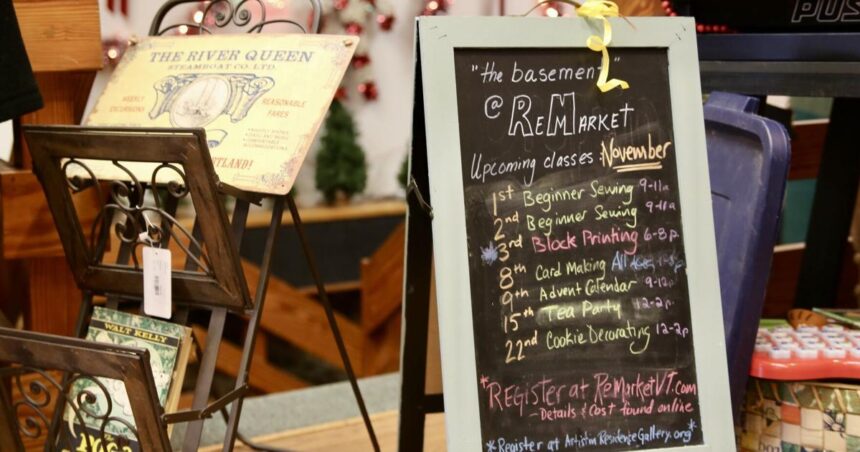 THE RIVER QUEEN
STEAMBOAT CO. LTD.
WEEKLY
EXCURSIONS
REASONABLE
FARES
WALT KELLY
PUS
"the basement"
@ REMARKET
Upcoming classes: November
1st Beginner Sewing 9-11a
2nd Beginner Sewing 9-11a
*3rd Block Printing 6-8p
8th Card Making All
9th Advent Calendar 9-12
15th Tea Party 12-2p
22nd Cookie Decorating 12-2p
*REGister at ReMarketVT.com
-Details & Cost found online
*Register at ArtistinResidenceGallery.org*